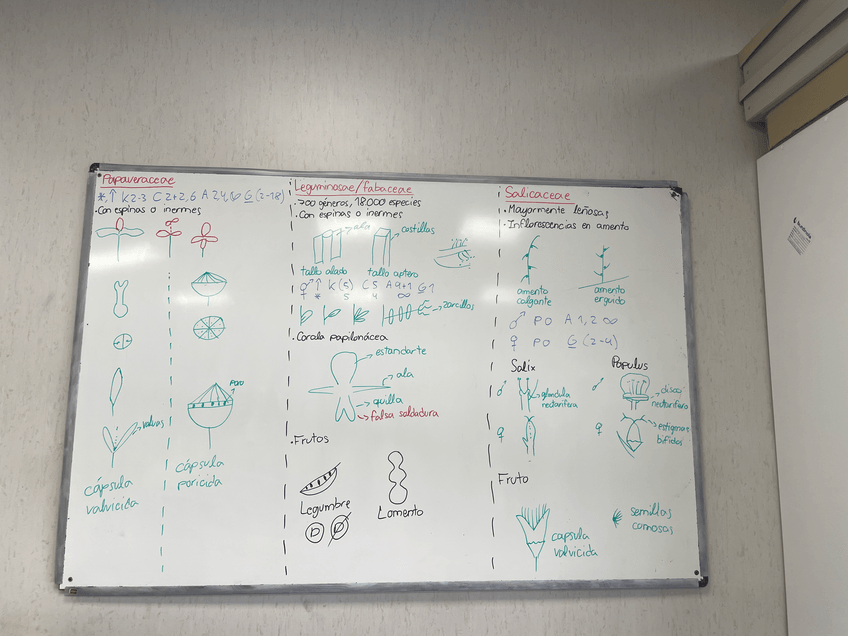 Papaveraceae
*,↑ K2-3 C2+2,6 A2,4,∞ G(2-18)
·Con espinas o inermes
valvas
cápsula
valvicida
Poro
cápsula
poricida
Leguminosae/fabaceae
·700 géneros, 18000 especies
·Con espinas o inermes
ala
costillas
tallo alado
tallo áptero
♂ ↑ K(5) C5 A9+1 G1
* 5 4 ∞
zarcillos
·Corola papilonácea
estandarte
ala
quilla
falsa soldadura
·Frutos
Legumbre
Lomento
Salicaceae
·Mayormente leñosas
·Inflorescencias en amento
amento
colgante
amento
erguido
♂ P0 A 1,2 ∞
♀ P0 G (2-4)
Salix
Populus
♂
glándula
nectarífera
♂
disco
nectarífero
♀
♀
estigmas
bífidos
Fruto
capsula
valvicida
semillas
comosas